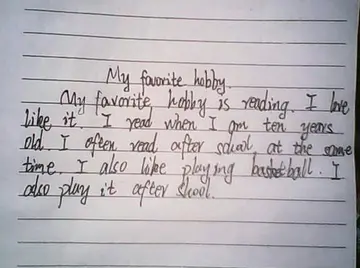 My favorite hobby.
My favorite hobby is reading. I love
like it. I read when I am ten years
old. I often read after school. at the same
time. I also like playing basketball. I
also play it after shool.